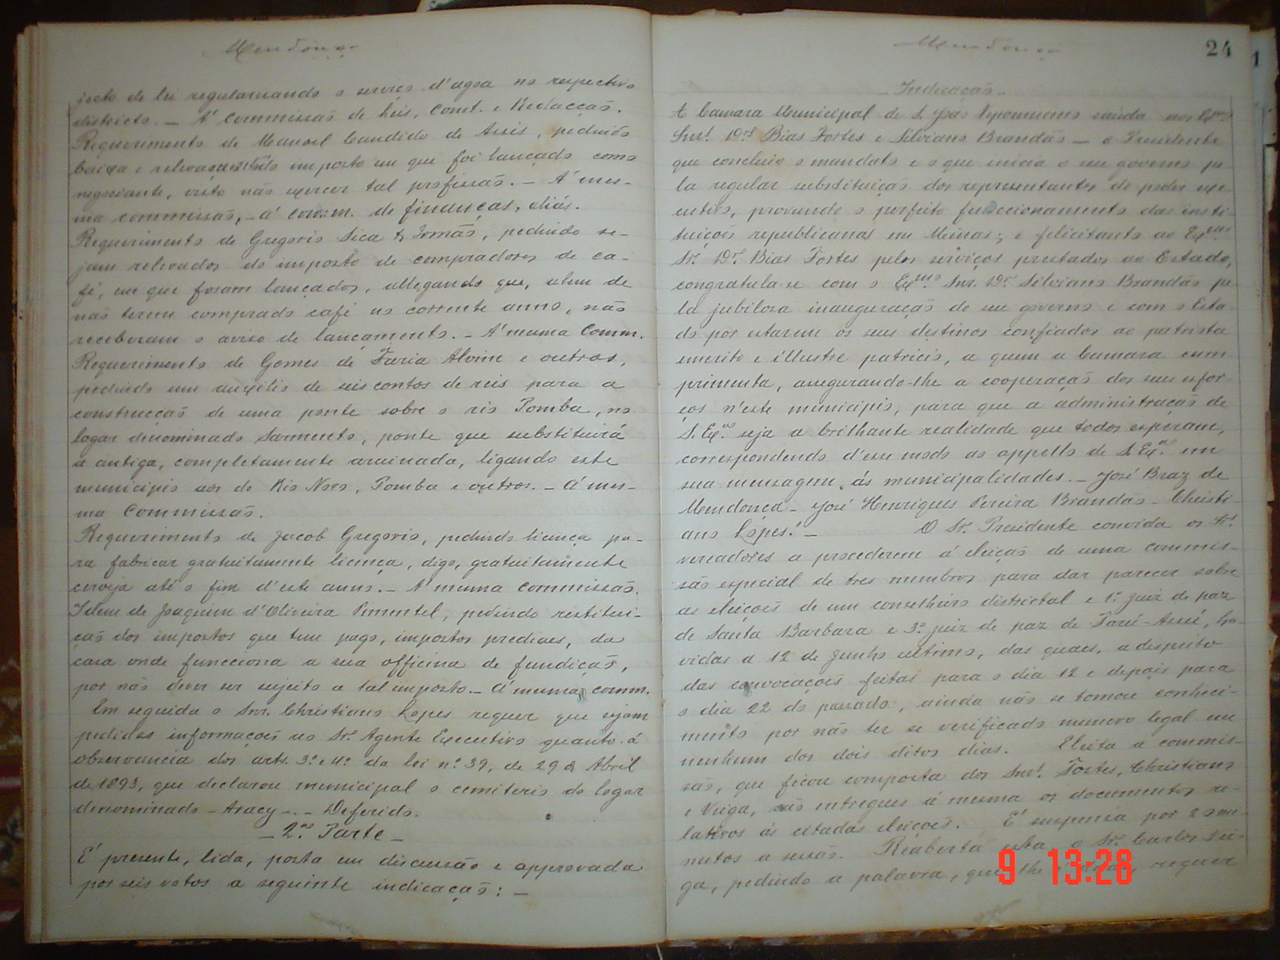 Mendonça
jecto de lei regularisando o serviço d'agoa no respectivo
districto. — A' Commissão de Leis, Const. e Redacção.
Requerimento de Manoel Candido de Assis, pedindo
baixa e imposto em que foi lançado como
negociante, visto não exercer tal profissão. — A' mes-
ma commissão, — á comm. de finanças, aliás.
Requerimento de Gregorio Sica & Irmão, pedindo se-
jam relevados do imposto de compradores de ca-
fé, em que foram lançados, allegando que, alem de
não terem comprado café no corrente anno, não
receberam o aviso de lançamento. — A' mesma Comm.
Requerimento de Gomes de Faria Alvim e outros,
pedindo um auxilio de seis contos de reis para a
construcção de uma ponte sobre o rio Pomba, no
logar denominado Sarmento, ponte que substituirá
a antiga, completamente arruinada, ligando este
municipio aos do Rio Novo, Pomba e outros. — A' mes-
ma Commissão.
Requerimento de Jacob Gregorio, pedindo licença pa-
ra fabricar gratuitamente licença, digo, gratuitamente
cerveja até o fim d'este anno. — A' mesma commissão.
Idem de Joaquim d'Oliveira Pimentel, pedindo restitui-
ção dos impostos que tem pago, impostos prediaes, da
casa onde funcciona a sua officina de fundição,
por não dever ser sujeito a tal imposto. — A' mesma comm.
Em seguida o Snr. Christiano Lopes requer que sejam
pedidas informações ao Sr. Agente Executivo quanto á
observancia dos arts. 3º e 4º da lei nº 39, de 29 de Abril
de 1893, que declarou municipal o cemiterio do logar
denominado — Aracy —. — Deferido.
— 2ª Parte —
É presente, lida, posta em discussão e approvada
por seis votos a seguinte indicação: —
Mendonça
24
— Indicação —
A Camara Municipal de S. João Nepomuceno saúda aos Exmos
Snrs. Drs. Bias Fortes e Silviano Brandão — o Presidente
que concluio o mandato e o que inicia o seu governo pe-
la regular substituição dos representantes do poder exe-
cutivo, provando o perfeito funccionamento das insti-
tuições republicanas em Minas; e felicitando ao Exmo
Sr. Dr. Bias Fortes pelos serviços prestados ao Estado,
congratula-se com o Exmo Snr. Dr. Silviano Brandão pe-
la jubilosa inauguração de seu governo e com o Esta-
do por estarem os seus destinos confiados ao patriota
emerito e illustre patricio, a quem a Camara cum-
primenta, assegurando-lhe a cooperação dos seus esfor-
ços n'este municipio, para que a administração de
S. Exª seja a brilhante realidade que todos esperam,
correspondendo d'esse modo ao appello de S. Exª em
sua mensagem ás municipalidades. — José Braz de
Mendonça — José Henriques Pereira Brandão — Christi-
ano Lopes." — O Sr. Presidente convida os Srs.
vereadores a procederem á eleição de uma commis-
são especial de tres membros para dar parecer sobre
as eleições de um conselheiro districtal e 1º juiz de paz
de Santa Barbara e 3º juiz de paz de Tarú-Assú, ha-
vidas a 12 de Junho ultimo, das quaes, a despeito
das convocações feitas para o dia 12 e depois para
o dia 22 do passado, ainda não se tomou conheci-
mento por não ter se verificado numero legal em
nenhum dos dois ditos dias. Eleita a commis-
são, que ficou composta dos Snrs. Fortes, Christiano
e Veiga, são entregues á mesma os documentos re-
lativos ás citadas eleições. É suspensa por 2 mi-
nutos a sessão. Reaberta esta, o Sr. Carlos Vei-
ga, pedindo a palavra, que lhe é dada, requer
9 13:28